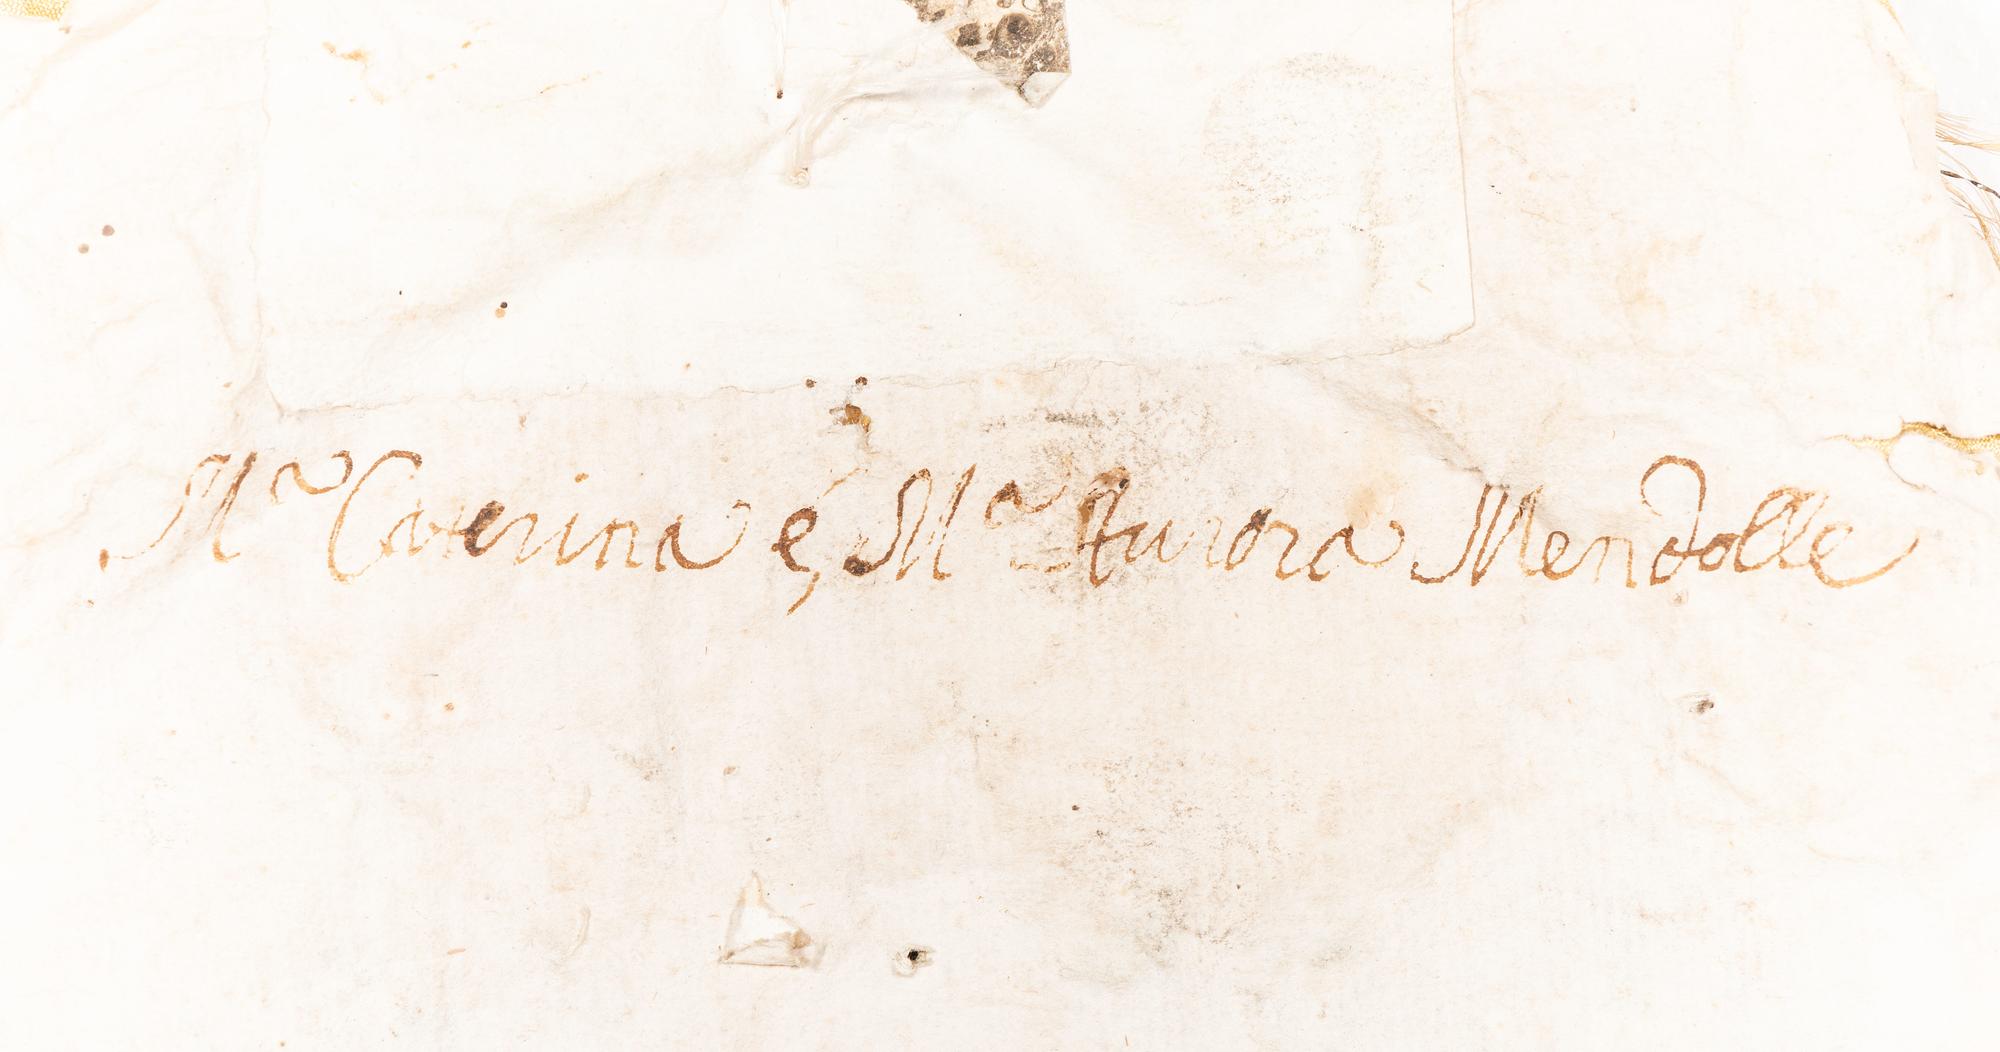 Mª Caterina è, Mª Aurora Mendolle